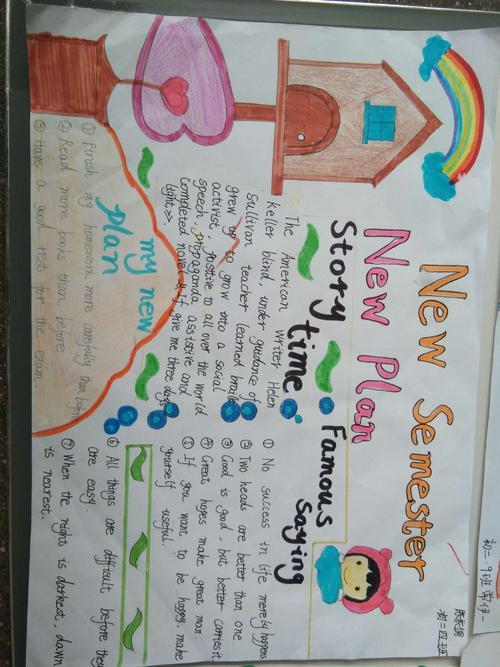 New Semester
New Plan
Story time
The American writer Helen
Keller blind, under guidance of
Sullivan teacher learned braile
grew up to grow into a social
activist, positive to all over the world
speech, propaganda assistive and
completed novel <<If give me three days
light>>.
Famous
saying
① No success in life merely happens
② Two heads are better than one.
③ Good is good, but better carries it
④ Great hopes make great man.
⑤ If you want to be happy, make
yourself useful.
⑥ All things are difficult before they
are easy.
⑦ When the night is darkest, dawn
is nearest.
my new
plan
① Finish my homework more carefully than before
② Read more books than before
③ Have a good rest for the exam.
初二四班
初二.9班